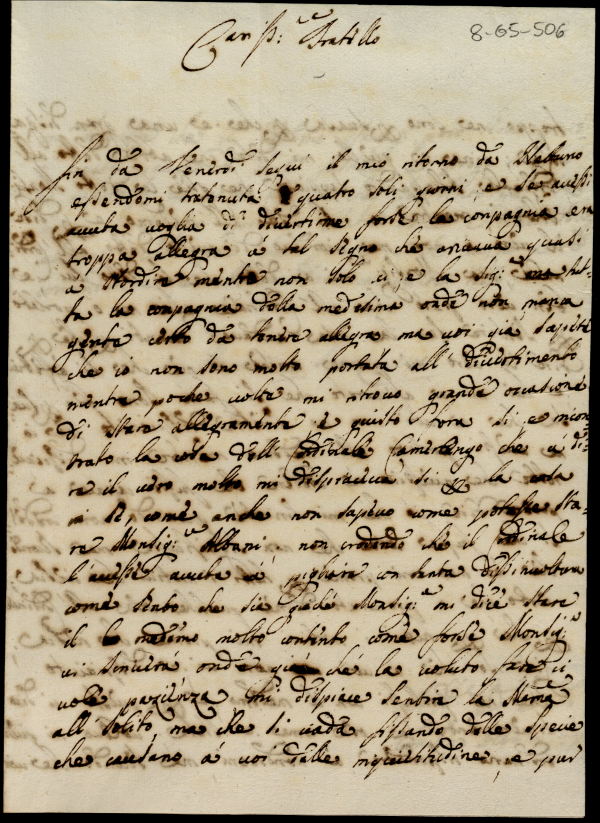 8-65-506
Cariss:mo Fratello
Fin da Venerdì seguì il mio ritorno da Nettuno
essendomi tratenuta quatro soli giorni, e se avessi
avuta voglia di divertirme forse la compagnia era
troppa allegra á tal segno che arivava quasi
á stordire mentre non solo ci, e la Sig:ra ma tut-
ta la compagnia della medesima onde non manca
gente certo da tenere allegra ma voi già sapete
che io non sono molto portata all' divertimento
mentre poche volte mi ritrovo grande occasione
di stare allegramente e questo fora si e incon-
trato la cosa dell Cardinale Camerlengo che á di-
re il vero molto mi dispiaceva si per la cosa
in se, come anche non sapevo come potesse sta-
re Monsig:re Albani, non credendo che il Cardinale
l'avesse avuta á pigliare con tanta dissinvoltura
come sento che sia giaché Monsig:re mi dice stare
il medemo molto contento come forse Monsig:re
vi scriverà onde che la voluto fare ci
vole pazienza, mi dispiace sentire la
all' solito, ma che si vada fissando delle specie
che causano á voi delle inquietitudine, e pur